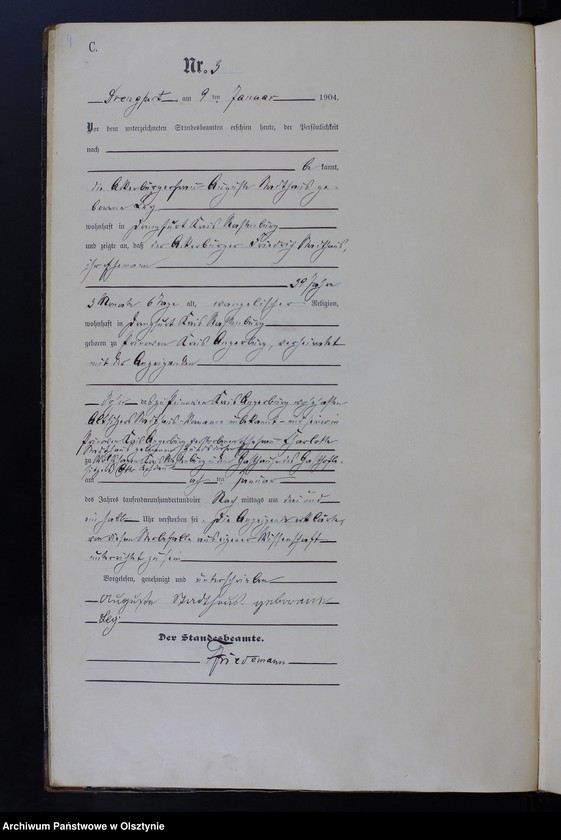 C.
Nr. 3
Drengfurt am 9 ten Januar 1904.
Vor dem unterzeichneten Standesbeamten erschien heute, der Persönlichkeit
nach
be kannt,
die Ackerbürgerfrau Auguste Stadthaus ge-
borene Ley
wohnhaft in Drengfurt Kreis Rastenburg
und zeigte an, daß der Ackerbürger Friedrich Stadthaus,
ihr Ehemann
39 Jahre
3 Monate 6 Tage alt, evangelischer Religion,
wohnhaft in Drengfurt Kreis Rastenburg
geboren zu Kreis Angerburg, verheiratet
mit der Anzeigenden
Sohn des zu Kreis Angerburg
Altsitzers Stadthaus Vorname unbekannt und seiner in
Kreis Angerburg verstorbenen Ehefrau Charlotte
Stadthaus geborene
zu Kreis Rastenburg in dem Gasthause des Gasthofbe-
sitzers
am acht ten Januar
des Jahres tausendneunhundertundvier Nach mittags um drei und
ein halb Uhr verstorben sei. Die Anzeigende erklärte,
von diesem Sterbefalle aus eigener Wissenschaft
unterrichtet zu sein
Vorgelesen, genehmigt und unterschrieben
Auguste Stadthaus geborene
Ley
Der Standesbeamte.
Friedemann
Archiwum Państwowe w Olsztynie